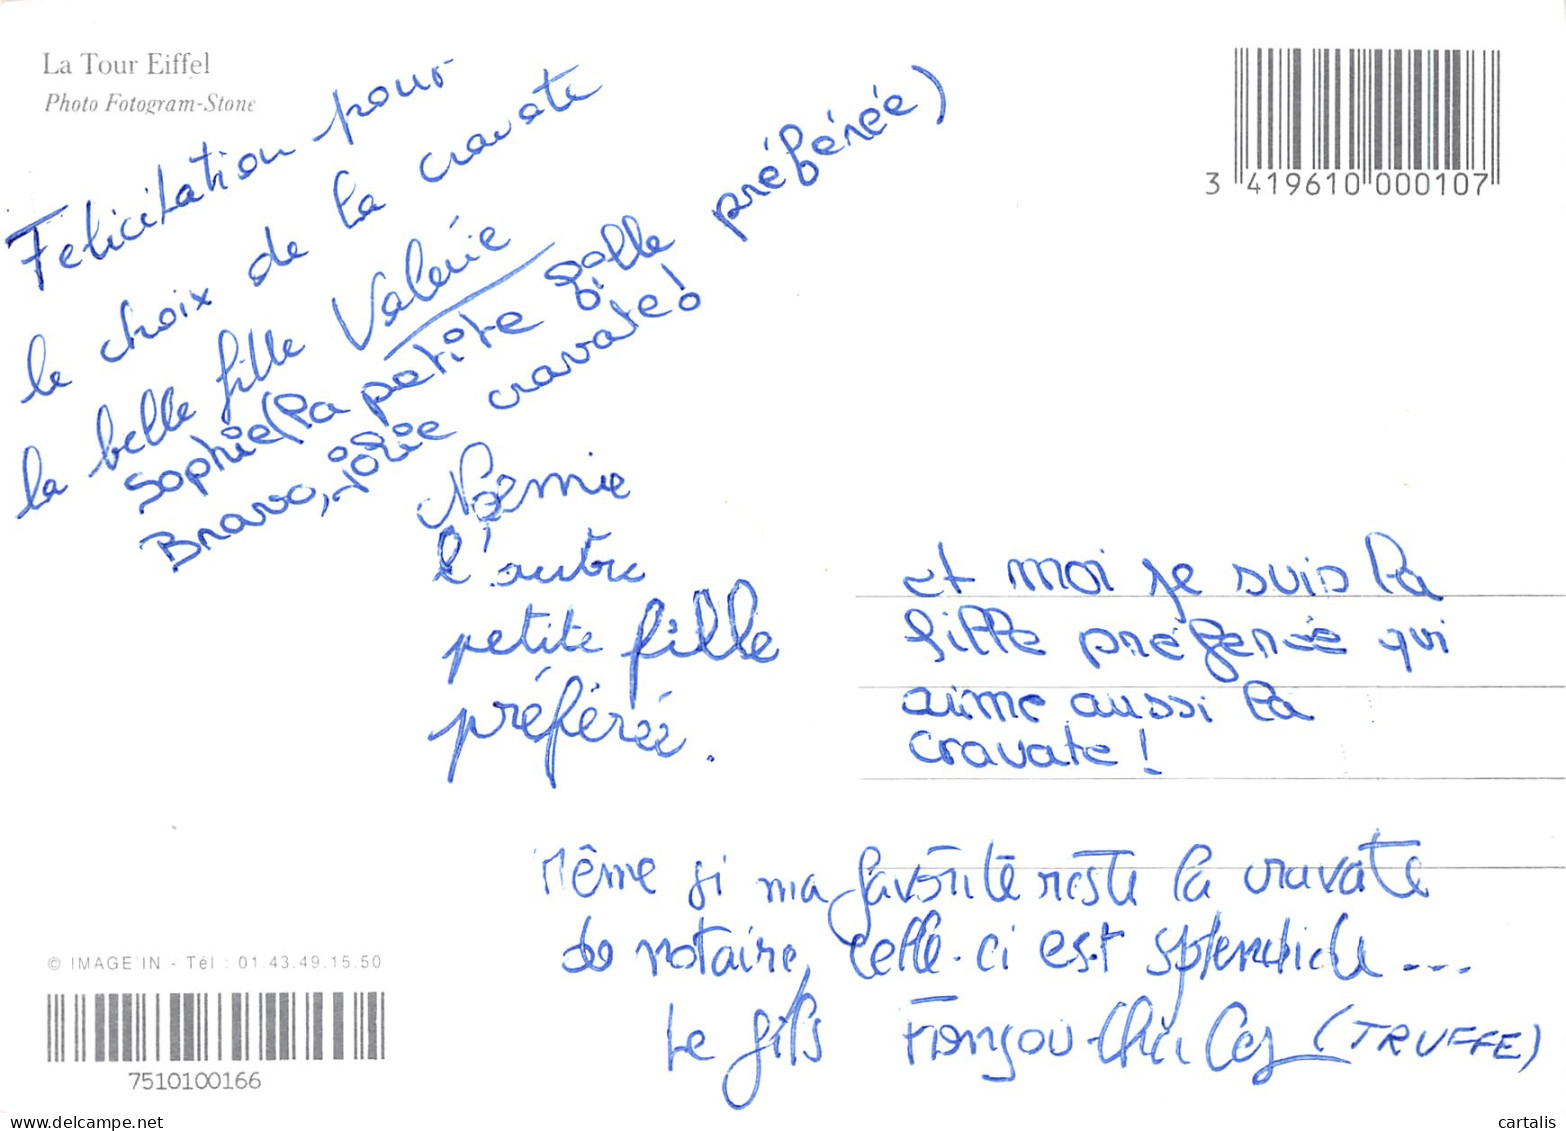 La Tour Eiffel
Photo Fotogram-Stone
3 419610 000107
Felicitation pour
le choix de la cravate
la belle fille Valérie
Sophie (la petite fille préférée)
Bravo, jolie cravate!
Noémie
l'autre
petite fille
préférée.
et moi je suis la
fille préférée qui
aime aussi la
cravate!
Même si ma favorite reste la cravate
de notaire, celle-ci est splendide...
Le fils (TRUFFE)
© IMAGE'IN - Tél : 01.43.49.15.50
7510100166
www.delcampe.net
cartalis